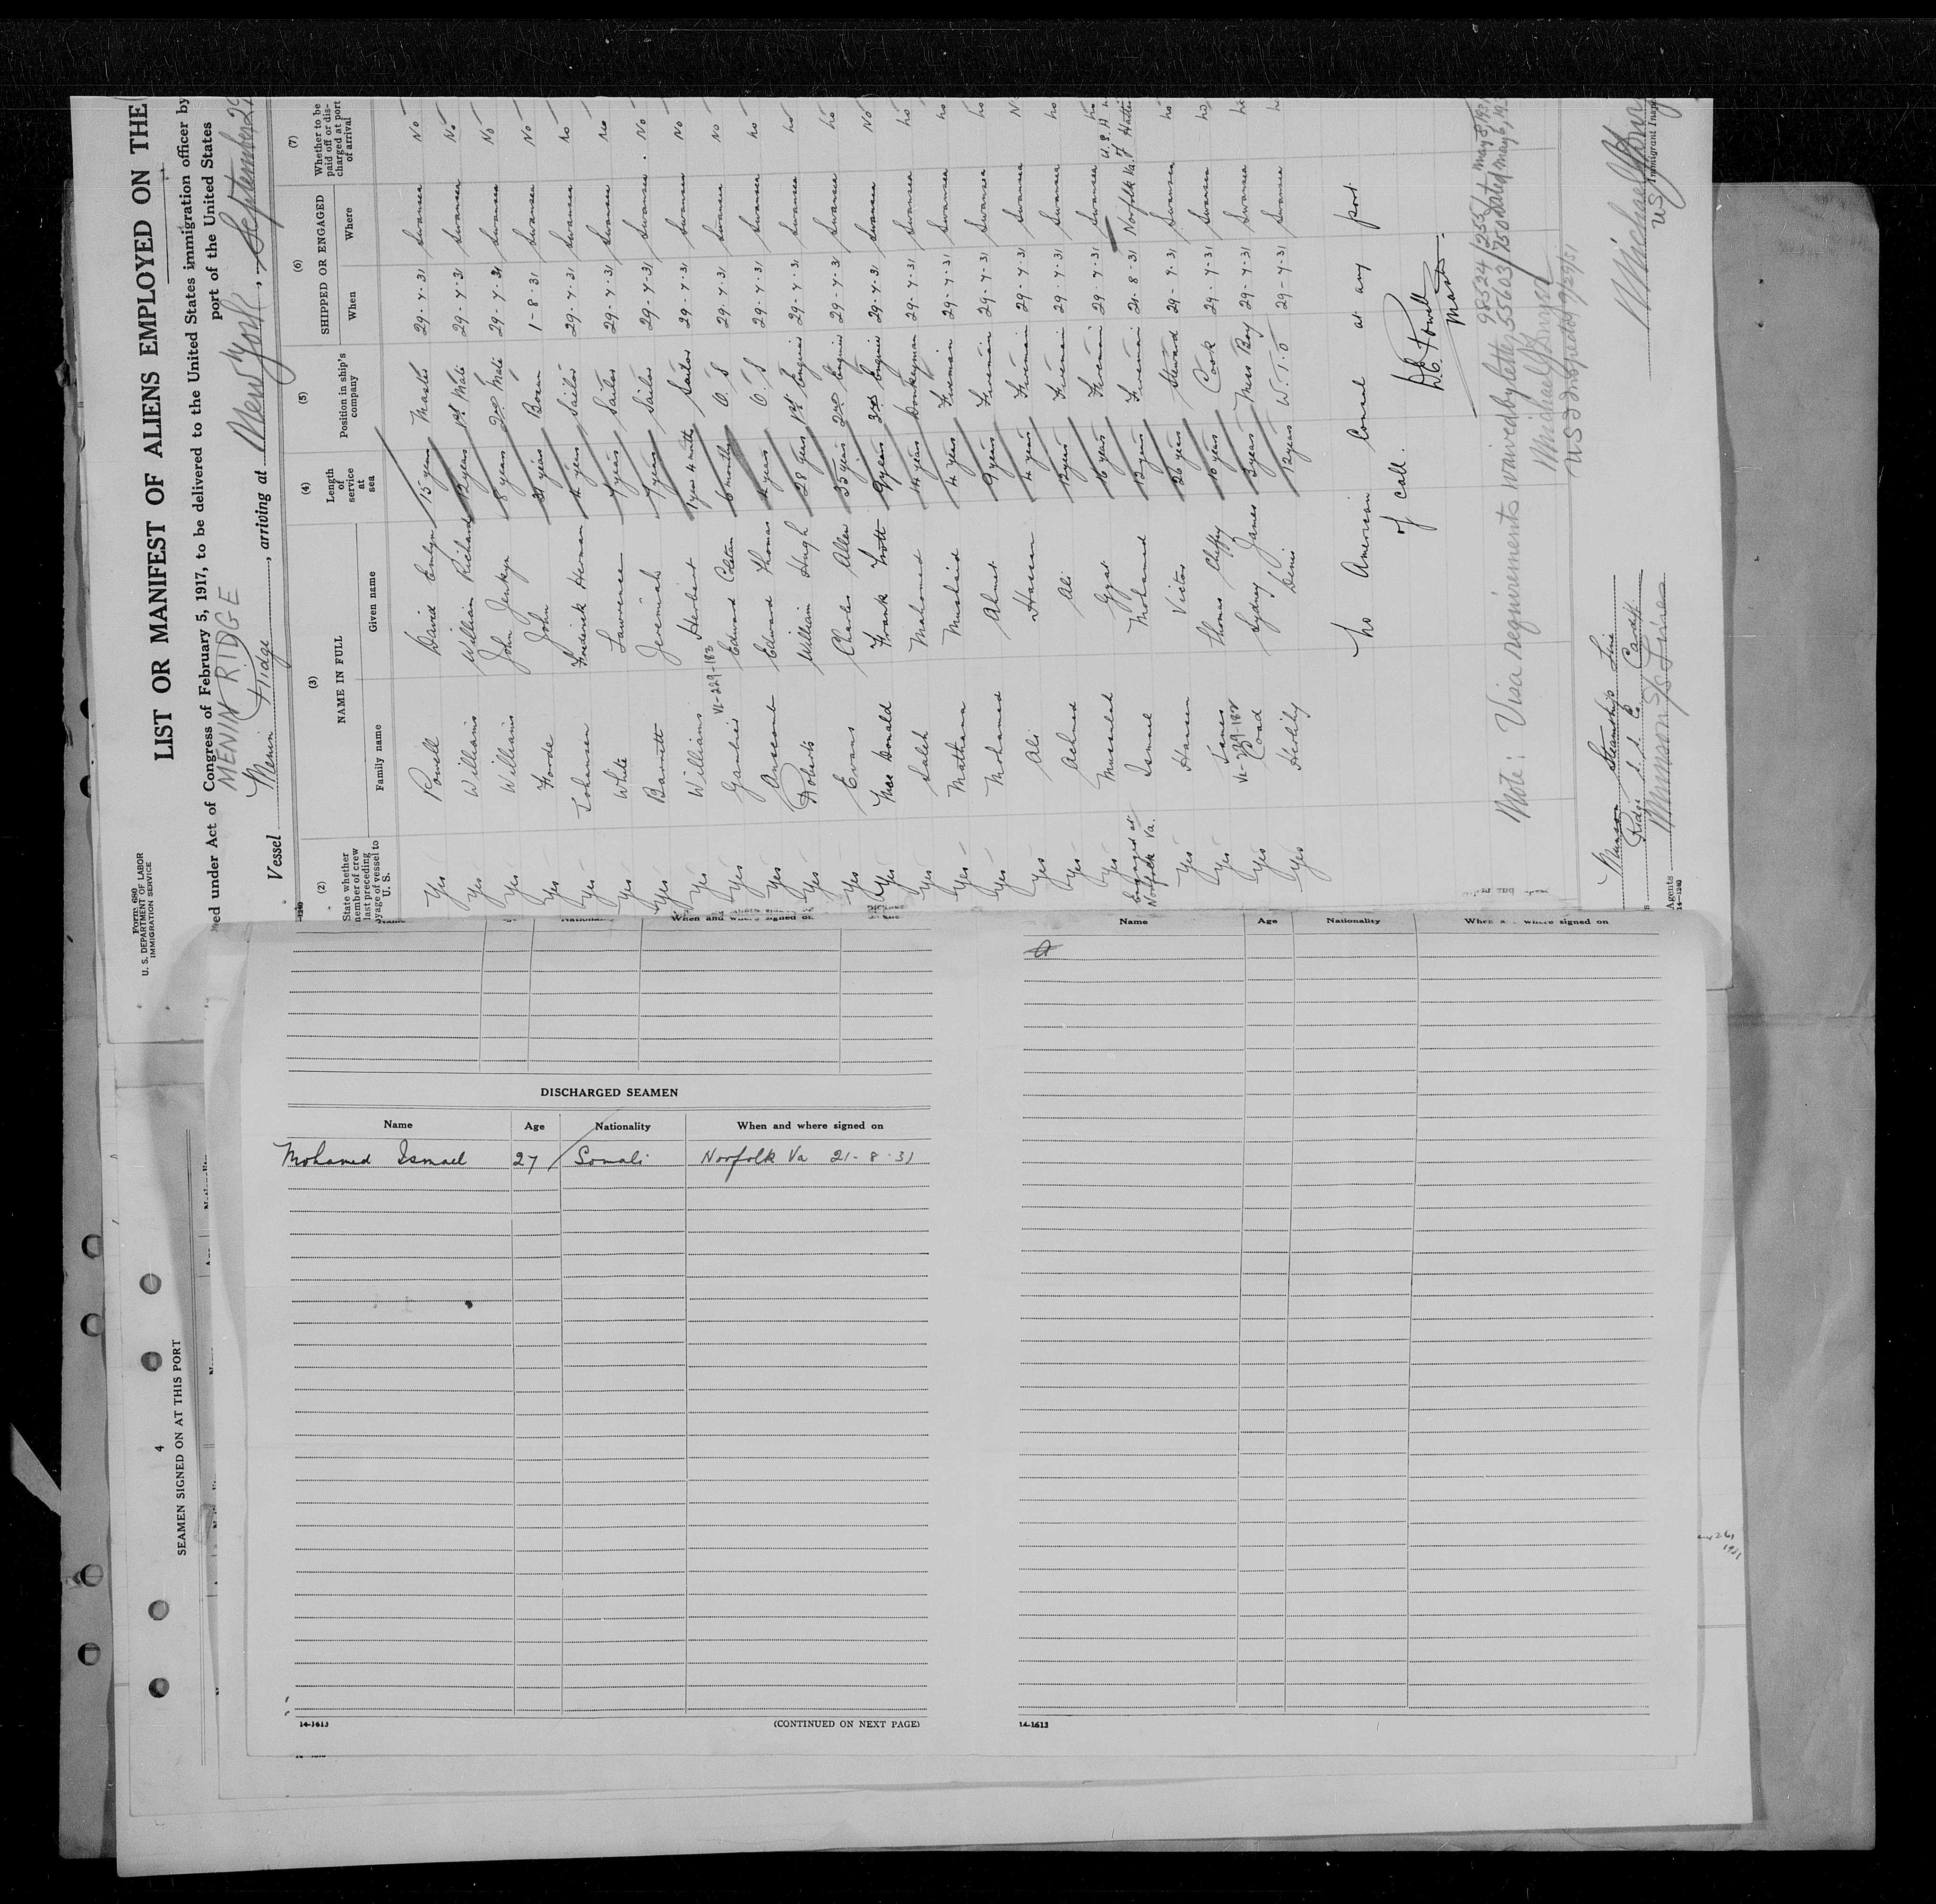 Form 680
U. S. DEPARTMENT OF LABOR
IMMIGRATION SERVICE
LIST OR MANIFEST OF ALIENS EMPLOYED ON THE
under Act of Congress of February 5, 1917, to be delivered to the United States immigration officer by
port of the United States
MENIN RIDGE
Vessel Menin Ridge, arriving at New York, September 29
(2) (3) (4) (5) (6) (7)
State whether member of crew last preceding voyage of vessel to U. S.
NAME IN FULL
Family name Given name
Length of service at sea
Position in ship's company
SHIPPED OR ENGAGED
When Where
Whether to be paid off or discharged at port of arrival
Yes Powell David Emlyn 15 years Master 29-7-31 Swansea No
Yes Williams William Richard 12 years 1st Mate 29-7-31 Swansea No
Yes Williams John Jenkyn 8 years 2nd Mate 29-7-31 Swansea No
Yes Forde John 31 years Bosun 1-8-31 Swansea No
Yes Johansen Frederick Herman 4 years Sailor 29-7-31 Swansea no
Yes White Lawrence 7 years Sailor 29-7-31 Swansea no
Yes Barrett Jeremiah 7 years Sailor 29-7-31 Swansea No
Yes Williams Herbert 1 year 4 months Sailor 29-7-31 Swansea No
VL-229-183
Yes Edward 6 months O. S 29-7-31 Swansea No
Yes Edward Thomas 4 years O. S 29-7-31 Swansea no
Yes Roberts William Hugh 28 years 1st Engineer 29-7-31 Swansea no
Yes Evans Charles Allen 35 years 2nd Engineer 29-7-31 Swansea no
Yes Mac Donald Frank Trott 9 years 3rd Engineer 29-7-31 Swansea No
Yes Saleh Mahomed 14 years Donkeyman 29-7-31 Swansea no
Yes 4 years Fireman 29-7-31 Swansea no
Yes Mohamed Ahmet 9 years Fireman 29-7-31 Swansea no
Yes Ali Hassan 4 years Fireman 29-7-31 Swansea No
Yes Achmed Ali 12 years Fireman 29-7-31 Swansea no
Yes 16 years Fireman 29-7-31 Swansea no
Engaged at Norfolk Va. Ismael Mohamed 13 years Fireman 21-8-31 Norfolk Va.
Yes Hansen Victor 26 years Steward 29-7-31 Swansea no
Yes Jones Thomas 10 years Cook 29-7-31 Swansea no
VL-229-182
Yes Coad Sydney James 3 years Mess Boy 29-7-31 Swansea no
Yes Denis 12 years 29-7-31 Swansea no
No American Consul at any port
of call.
D.E. Powell
Master
98524/255
Note: Visa requirements waived by letter 55603/750 dated May 6, 19
Michael
9/29/31
Munson Steamship Line
Ridge S. S. Co Cardiff
Munson S/S Line
Agents
14-1240
Immigrant Inspector
Name
When and where signed on
DISCHARGED SEAMEN
Name Age Nationality When and where signed on
Mohamed Ismael 27 Somali Norfolk Va 21-8-31
14-1613
(CONTINUED ON NEXT PAGE)
Name Age Nationality When and where signed on
14-1613
4
SEAMEN SIGNED ON AT THIS PORT
1931